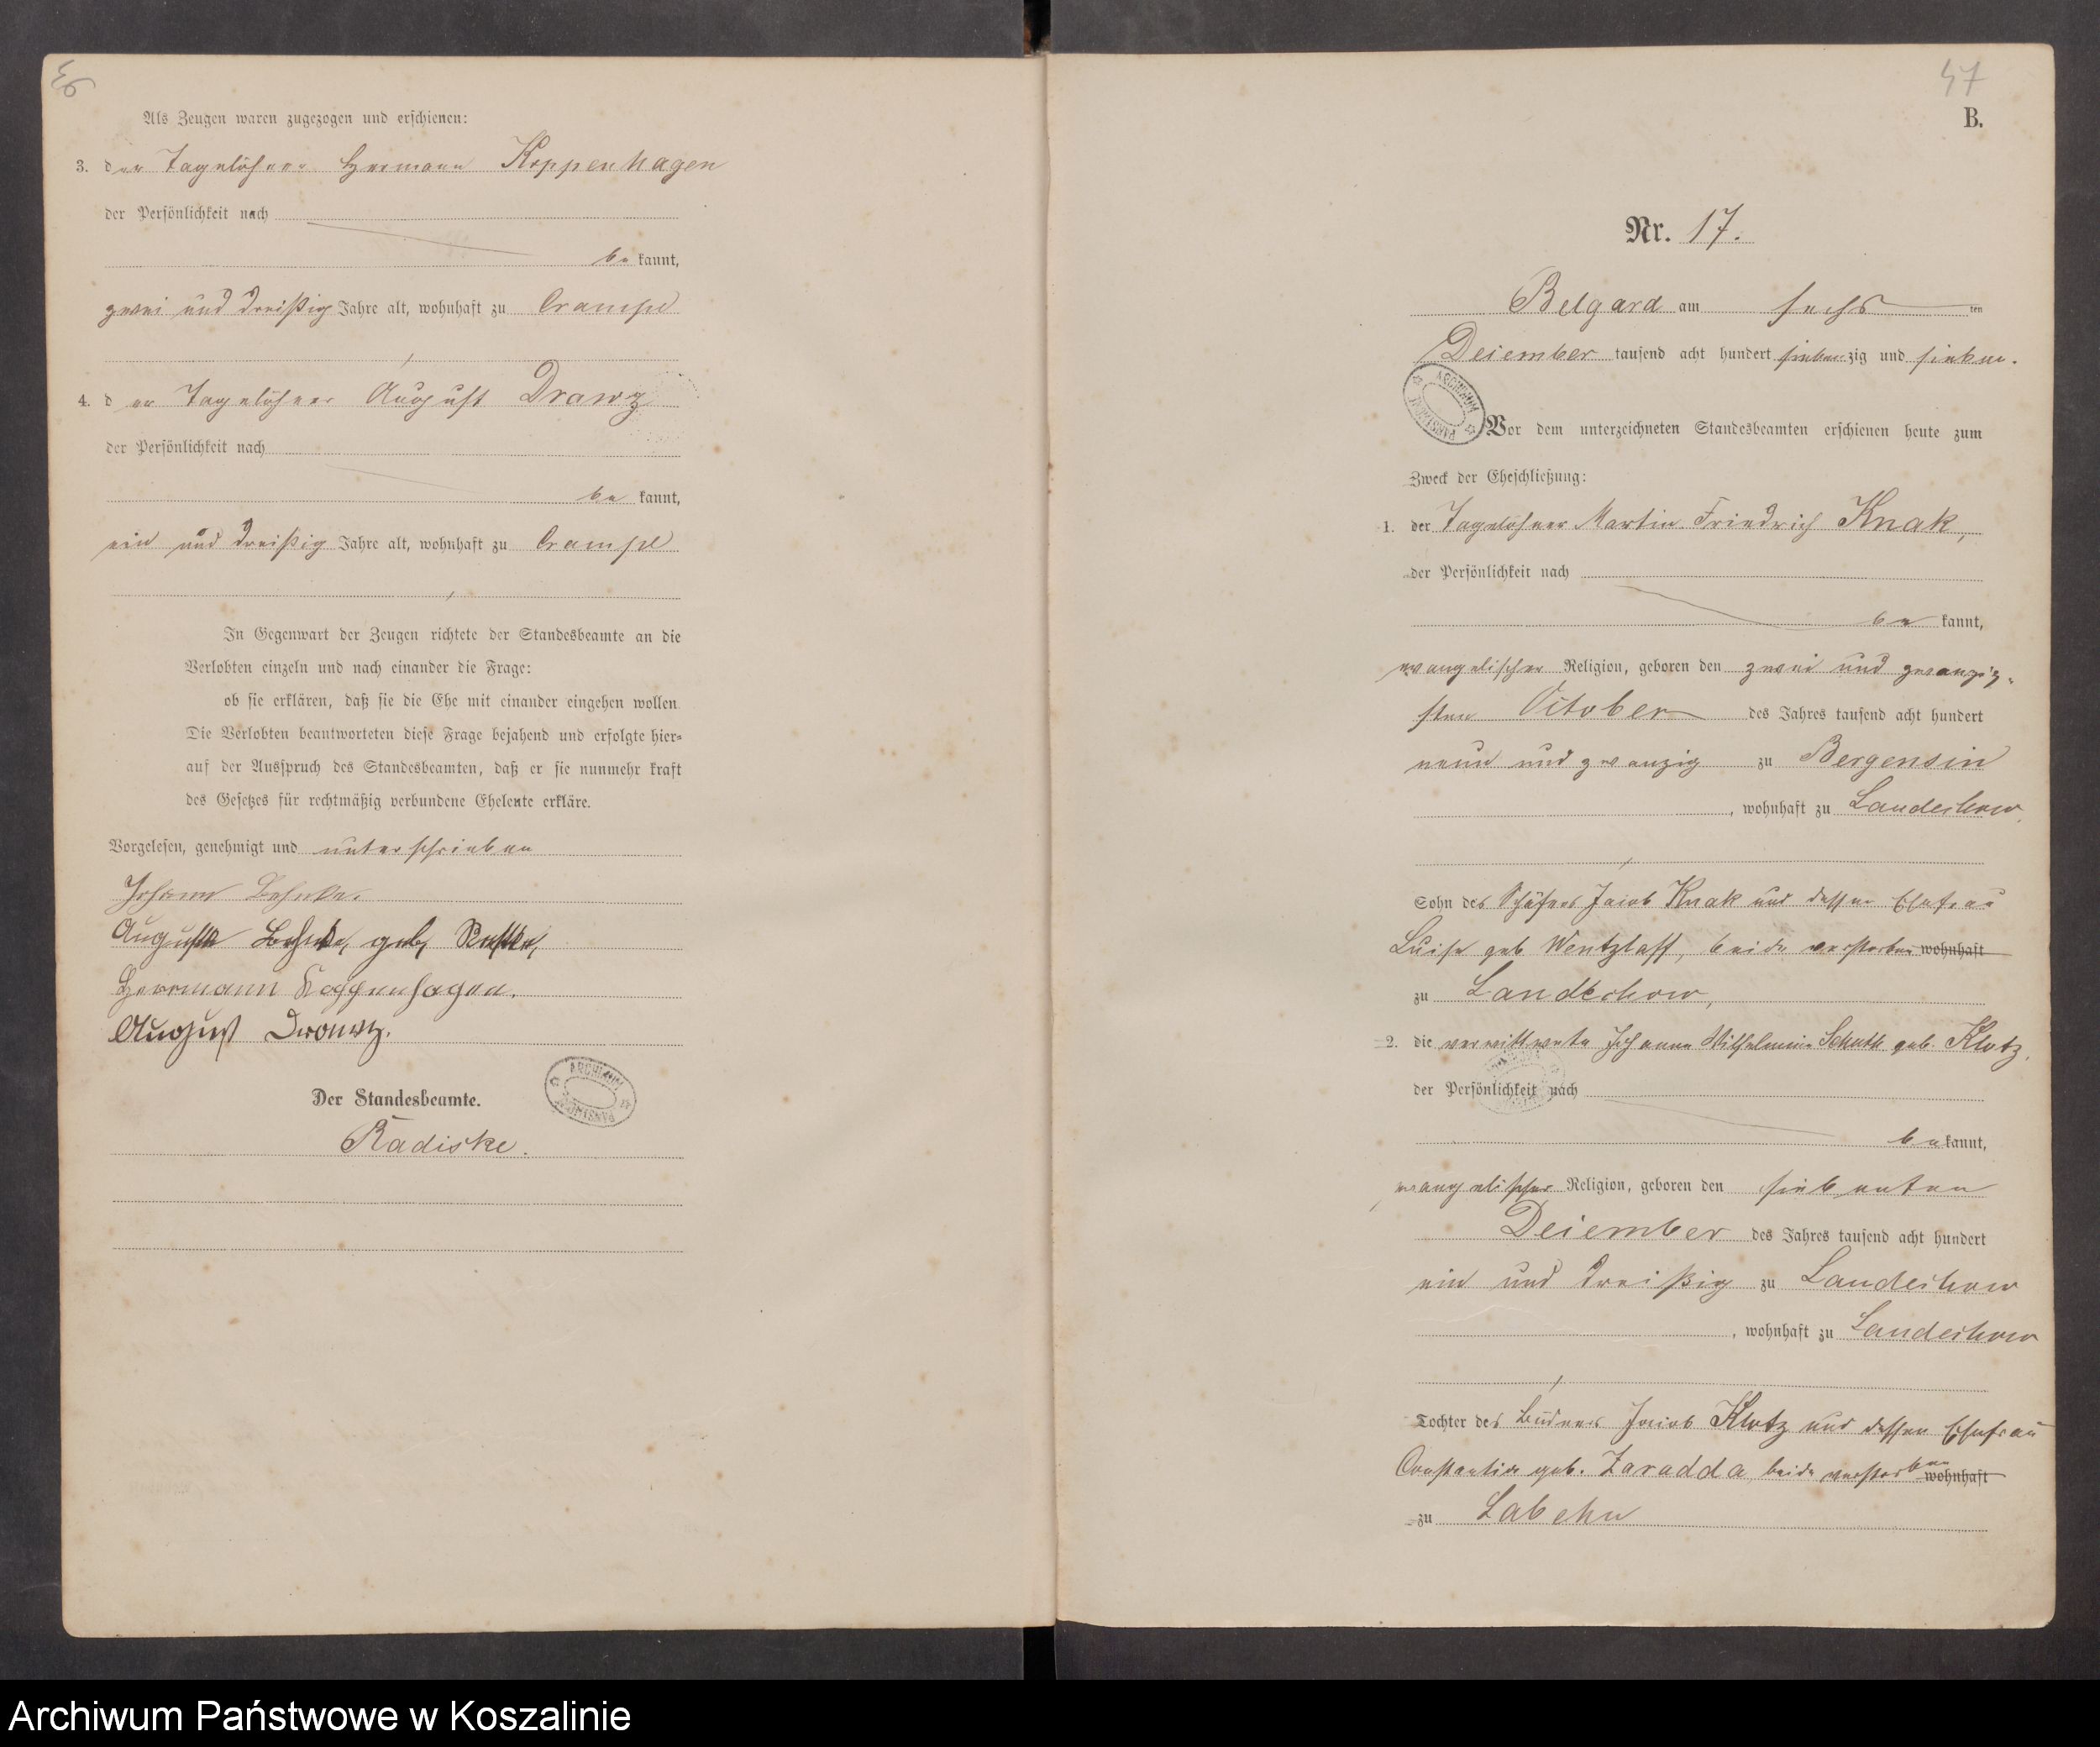 Als Zeugen waren zugezogen und erschienen:
3. der Tagelöhner Hermann Koppenhagen
der Persönlichkeit nach
be kannt,
zwei und dreißig Jahre alt, wohnhaft zu Crampe
4. d er Tagelöhner August Drawz
der Persönlichkeit nach
be kannt,
ein und dreißig Jahre alt, wohnhaft zu Crampe
In Gegenwart der Zeugen richtete der Standesbeamte an die
Verlobten einzeln und nach einander die Frage:
ob sie erklären, daß sie die Ehe mit einander eingehen wollen.
Die Verlobten beantworteten diese Frage bejahend und erfolgte hier-
auf der Ausspruch des Standesbeamten, daß er sie nunmehr kraft
des Gesetzes für rechtmäßig verbundene Eheleute erkläre.
Vorgelesen, genehmigt und unterschrieben
Johann Behnke.
Auguste Behnke, geb.
Herrmann Koppenhagen.
August Drawtz.
ARCHIWUM PAŃSTWOWE
Der Standesbeamte.
Radiske.
47
B.
Nr. 17.
Belgard am sechs ten
December tausend acht hundert sieben zig und sieben.
ARCHIWUM PAŃSTWOWE
Vor dem unterzeichneten Standesbeamten erschienen heute zum
Zweck der Eheschließung:
1. der Tagelöhner Martin Friedrich Knak,
der Persönlichkeit nach
be kannt,
evangelischer Religion, geboren den zwei und zwanzig-
sten October des Jahres tausend acht hundert
neun und zwanzig zu Bergensin
, wohnhaft zu Landechow,
Sohn des Schäfers Jacob Knak und dessen Ehefrau
Luise geb Wentzlaff, beide verstorben wohnhaft
zu Landechow,
2. die verwittwete Johanna Wilhelmine Schuth geb. Klotz,
der Persönlichkeit nach
be kannt,
evangelischer Religion, geboren den siebenten
December des Jahres tausend acht hundert
ein und dreißig zu Landechow
, wohnhaft zu Landechow
Tochter des Büdners Jacob Klotz und dessen Ehefrau
Constantia geb. Zaradda, beide verstorben wohnhaft
zu Labehn
Archiwum Państwowe w Koszalinie